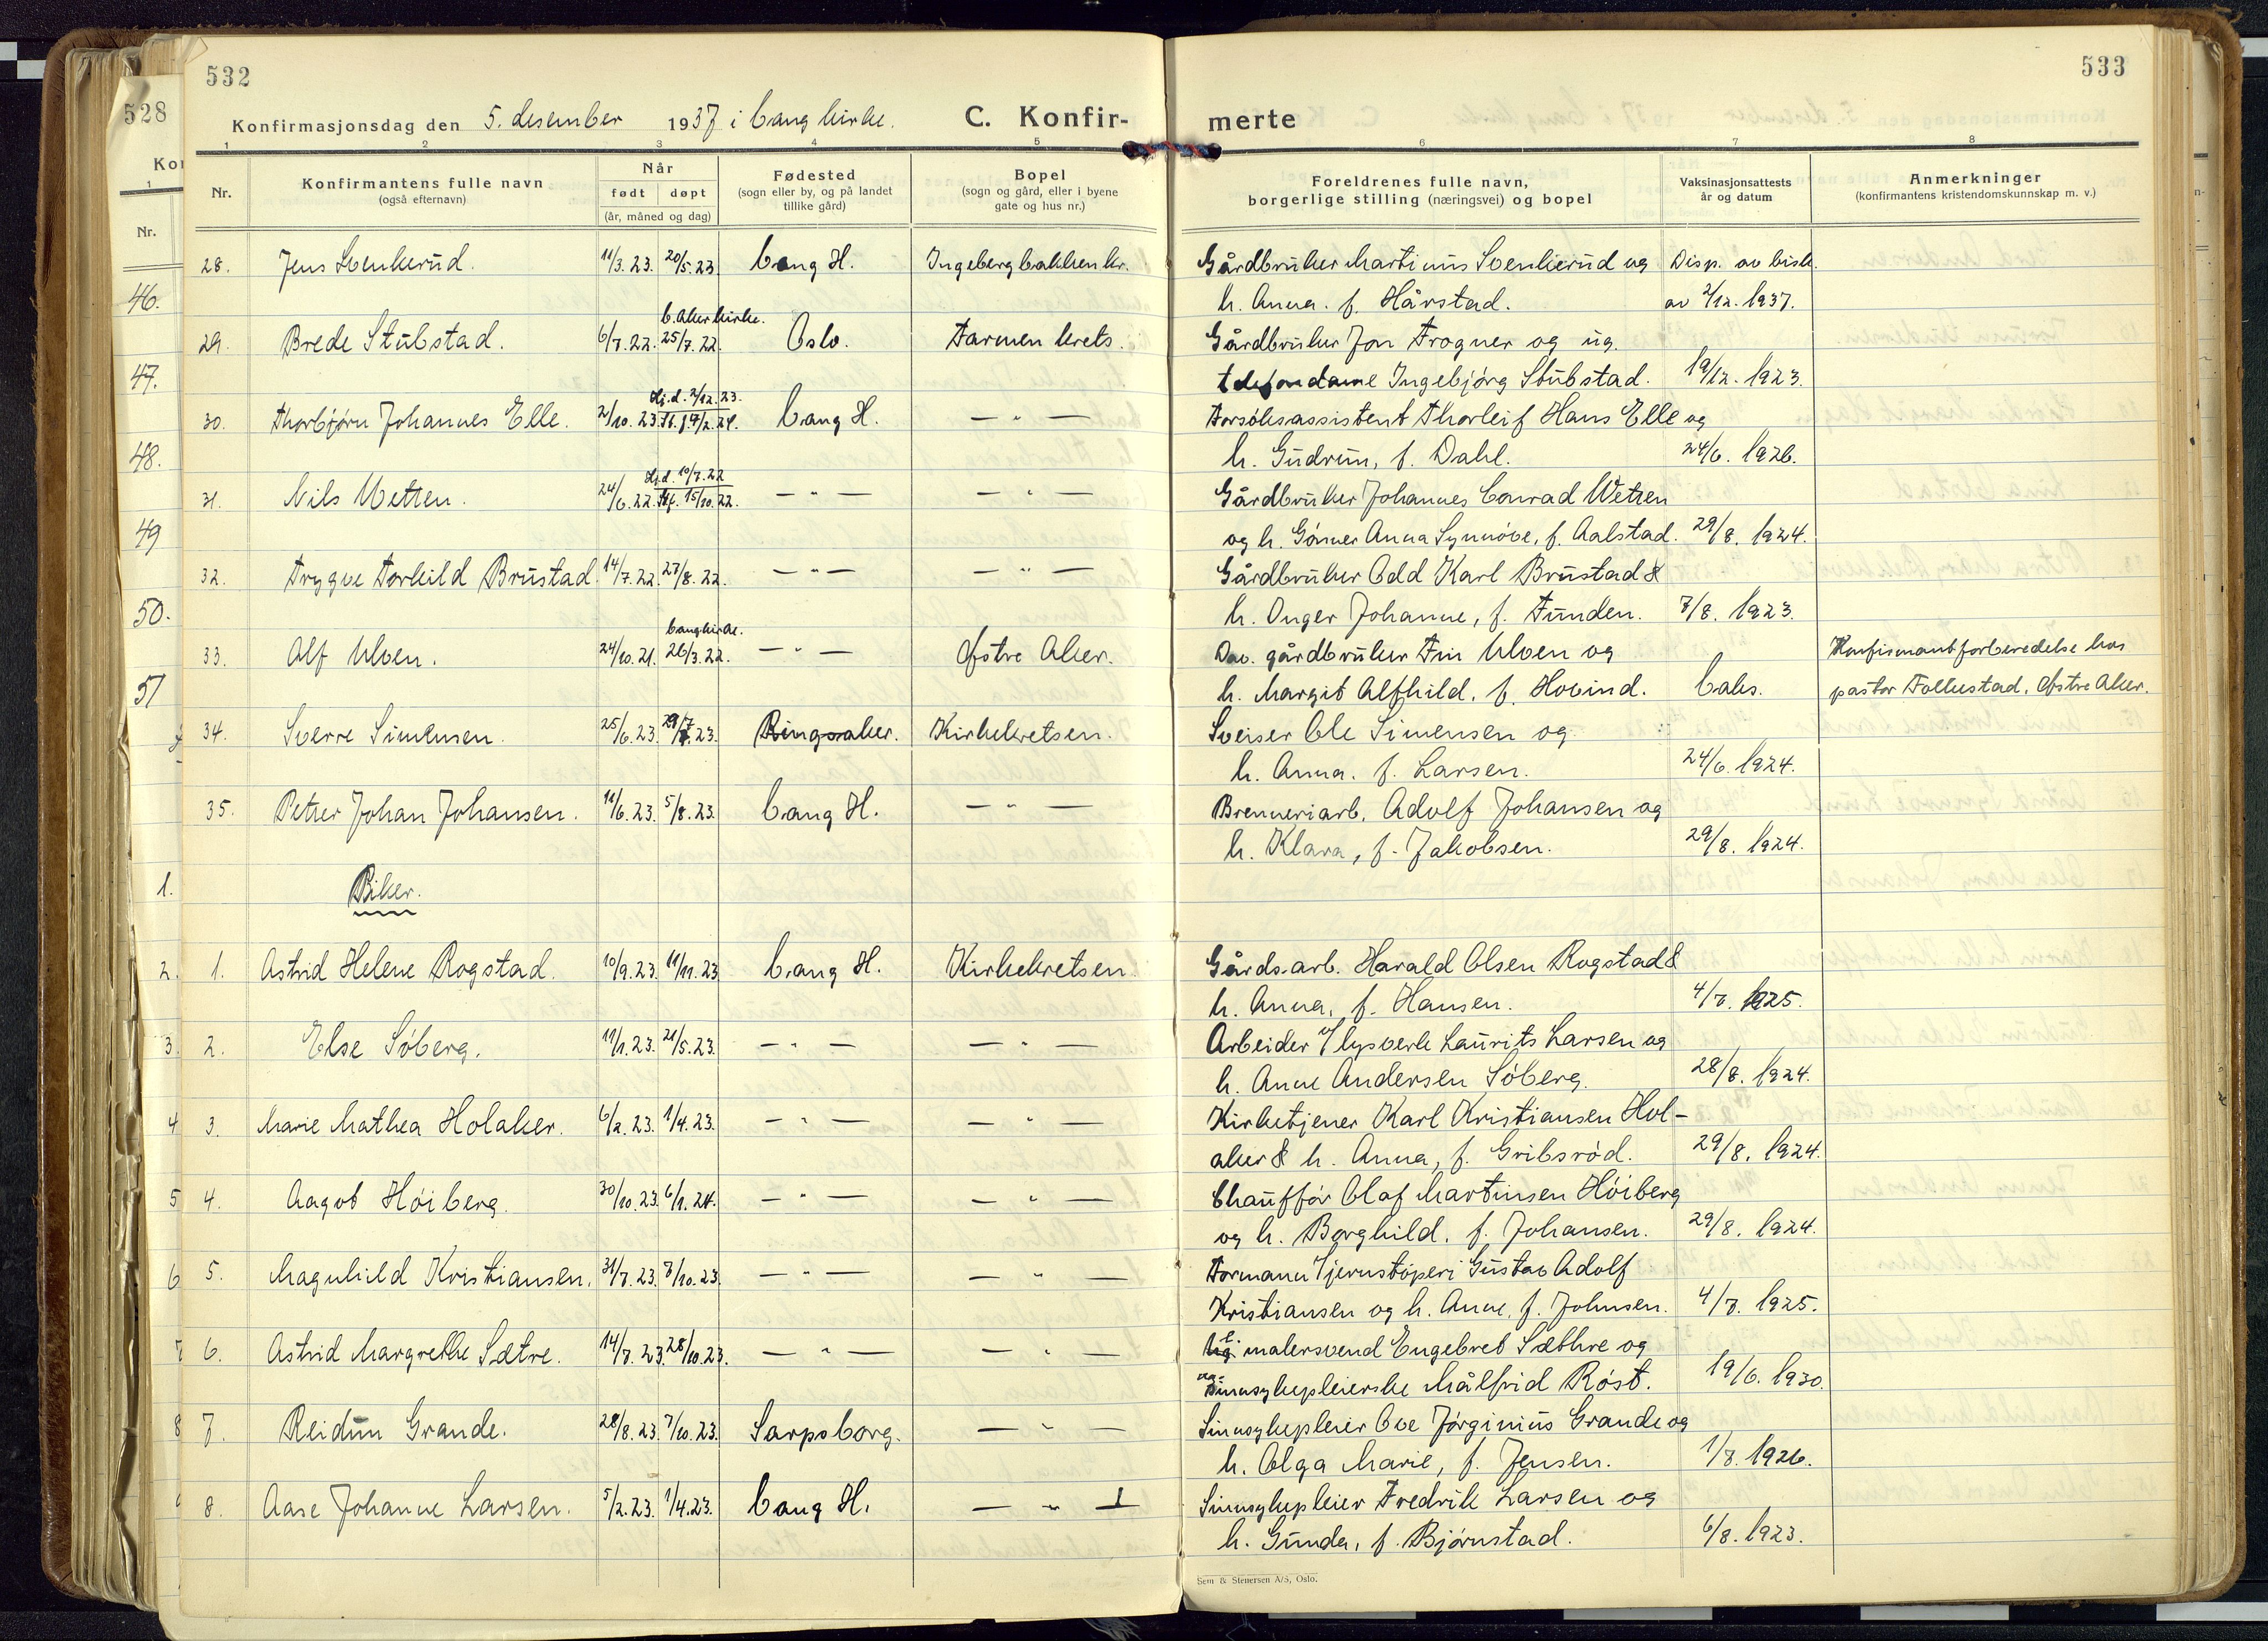 532
533
528
Konfirmasjonsdag den 5. desember 1937 i Vang kirke.
C. Konfir-
merte
Kon
Nr.
46.
47.
48.
49
50.
51
1.
2.
3.
4
5
6
7
8
1 2 3 4 5 6 7 8
Nr.
Konfirmantens fulle navn
(også efternavn)
Når
født døpt
(år, måned og dag)
Fødested
(sogn eller by, og på landet
tillike gård)
Bopel
(sogn og gård, eller i byene
gate og hus nr.)
Foreldrenes fulle navn,
borgerlige stilling (næringsvei) og bopel
Vaksinasjonsattests
år og datum
Anmerkninger
(konfirmantens kristendomskunnskap m. v.)
28. Jens Svenkerud. 11/3.23. 20/5.23. Vang H. Ingebergbakken kr. Gårdbruker Martinus Svenkerud og Disp. av bisk.
h. Anna. f. Hårstad. av 2/12. 1937.
V. Aker kirke.
29. Brede Stubstad. 6/7.22. 25/7.22. Oslo. Farmen krets. Gårdbruker Jon Frogner og ug.
telefondame Ingebjørg Stubstad. 19/12. 1923.
Hj.d. 2/12.23.
30. Thorbjørn Johannes Elle. 2/10.23. St.f. 17/2.24. Vang H. — " — Forsøksassistent Thorleif Hans Elle og
h. Gudrun, f. Dahl. 24/6. 1926.
Hj.d. 10/7.22
31. Nils Wetten. 24/6.22. St.f. 15/10.22. — " — — " — Gårdbruker Johannes Conrad Wetten
og h. Gönner Anna Synnøve, f. Aalstad. 29/8. 1924.
32. Trygve Torkild Brustad. 14/7.22. 27/8.22. — " — — " — Gårdbruker Odd Karl Brustad &
h. Inger Johanne, f. Tunden. 7/8. 1923.
Vang kirke.
33. Alf Ulven. 24/10.21. 26/3.22. — " — Østre Aker. Dav. gårdbruker Finn Ulven og Konfirmantforberedelse hos
h. Margit Alfhild. f. Hovind. Vaks. pastor Follestad, Østre Aker.
34. Sverre Simensen. 25/6.23. 29/7.23. Ringsaker. Kirkekretsen. Sveiser Ole Simensen og
h. Anna. f. Larsen. 24/6. 1924.
35. Petter Johan Johansen. 11/6.23. 5/8.23. Vang H. — " — Brenneriarb. Adolf Johansen og
h. Klara, f. Jakobsen. 29/8. 1924.
Piker.
1. Astrid Helene Rogstad. 10/9.23. 11/11.23 Vang H. Kirkekretsen. Gårds-arb. Harald Olsen Rogstad &
h. Anna, f. Hansen. 4/7. 1925.
2. Else Søberg. 19/1.23. 21/5.23. — " — — " — Arbeider v/lysverk Laurits Larsen og
h. Anne Andersen Søberg. 28/8. 1924.
3. Marie Mathea Holaker. 6/2.23. 1/4.23. — " — — " — Kirketjener Karl Kristiansen Hol-
aker & h. Anna, f. Gribsrød. 29/8. 1924.
4. Aagot Höiberg. 30/10.23. 6/1.24. — " — — " — Chauffør Olaf Martinsen Höiberg
og h. Borghild. f. Johansen. 29/8. 1924.
5. Magnhild Kristiansen. 31/7.23. 7/10.23. — " — — " — Formann v/jernstøperi Gustav Adolf
Kristiansen og h. Anne, f. Johnsen. 4/7. 1925.
6. Astrid Margrethe Sætre. 14/7.23. 28/10.23. — " — — " — malersvend Engebret Sæthre og
sinnsykepleierske Målfrid Röst. 19/6. 1930.
7. Reidun Grande. 28/8.23. 7/10.23. Sarpsborg. — " — Sinnsykepleier Ove Jörginius Grande og
h. Olga Marie, f. Jensen. 1/7. 1926.
8. Aase Johanne Larsen. 5/2.23. 1/4.23. Vang H. — " — Sinnsykepleier Fredrik Larsen og
h. Gunda, f. Bjørnstad. 6/8. 1923.
Sem & Stenersen A/S, Oslo.